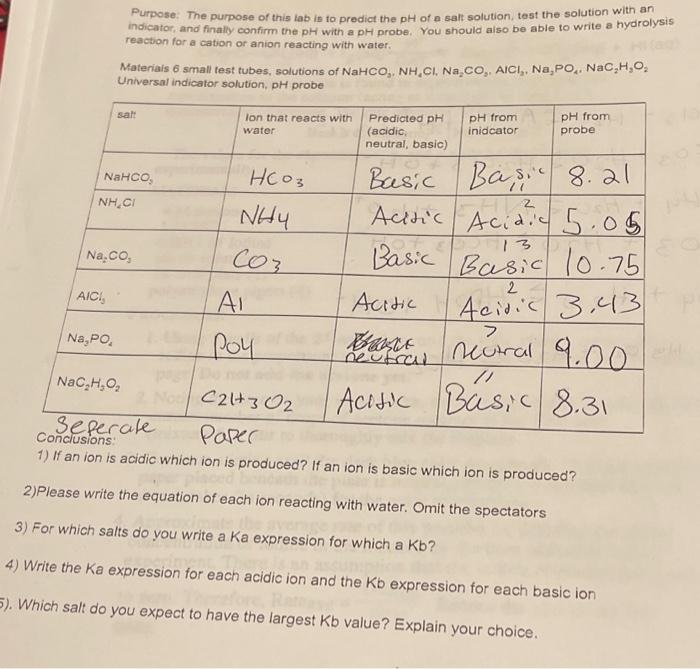 Purpose: The purpose of this lab is to predict the pH of a salt solution, test the solution with an
indicator, and finally confirm the pH with a pH probe. You should also be able to write a hydrolysis
reaction for a cation or anion reacting with water.
Materials 6 small test tubes, solutions of NaHCO₃, NH₄Cl, Na₂CO₃, AlCl₃, Na₃PO₄, NaC₂H₃O₂
Universal indicator solution, pH probe
salt Ion that reacts with water Predicted pH (acidic, neutral, basic) pH from inidcator pH from probe
NaHCO₃ HCO3 Basic Basic 11 8.21
NH₄Cl NH4 Acidic 2 Acidic 5.05
Na₂CO₃ CO3 Basic 13 Basic 10.75
AlCl₃ Al Acidic 2 Acidic 3.43
Na₃PO₄ PO4 neutral 7 neutral 9.00
NaC₂H₃O₂ C2H3O2 Acidic 11 Basic 8.31
Seperate Paper
Conclusions:
1) If an ion is acidic which ion is produced? If an ion is basic which ion is produced?
2)Please write the equation of each ion reacting with water. Omit the spectators
3) For which salts do you write a Ka expression for which a Kb?
4) Write the Ka expression for each acidic ion and the Kb expression for each basic ion
5). Which salt do you expect to have the largest Kb value? Explain your choice.